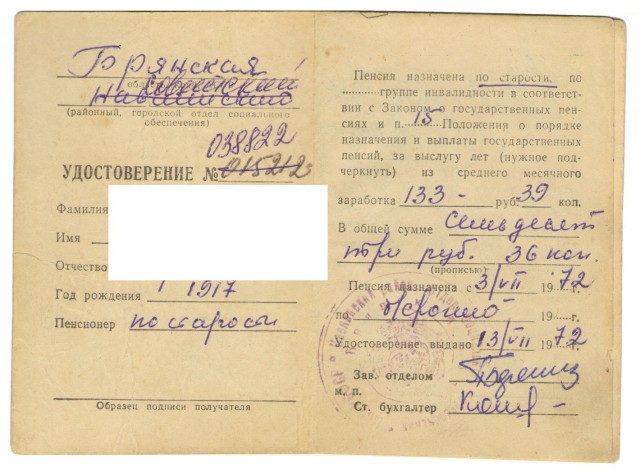 Брянская
Советский
Навлинский
(районный, городской отдел социального
обеспечения)
038822
УДОСТОВЕРЕНИЕ № 015212
Фамилия
Имя
Отчество
Год рождения 1917
Пенсионер по старости
Образец подписи получателя
Пенсия назначена по старости, по
группе инвалидности в соответст-
вии с Законом о государственных пен-
сиях и п. 15 Положения о порядке
назначения и выплаты государственных
пенсий, за выслугу лет (нужное под-
черкнуть) из среднего месячного
заработка 133 - руб. 39 коп.
В общей сумме Семьдесят
три руб. 36 коп.
(прописью)
Пенсия назначена с 3/VII 1972 г.
по 19 г.
Удостоверение выдано 13/VII 1972 г.
Зав. отделом
м. п.
Ст. бухгалтер